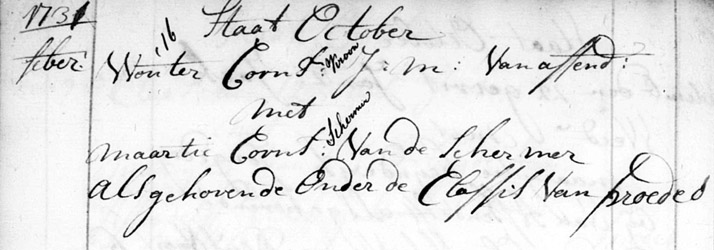 1731 Staat October
8ber '16 Wouter Corns: Kroon J: m: Van assend:
met
maartie Corns: Schermer Van de Schermer
als gehoorende Onder de Classis Van